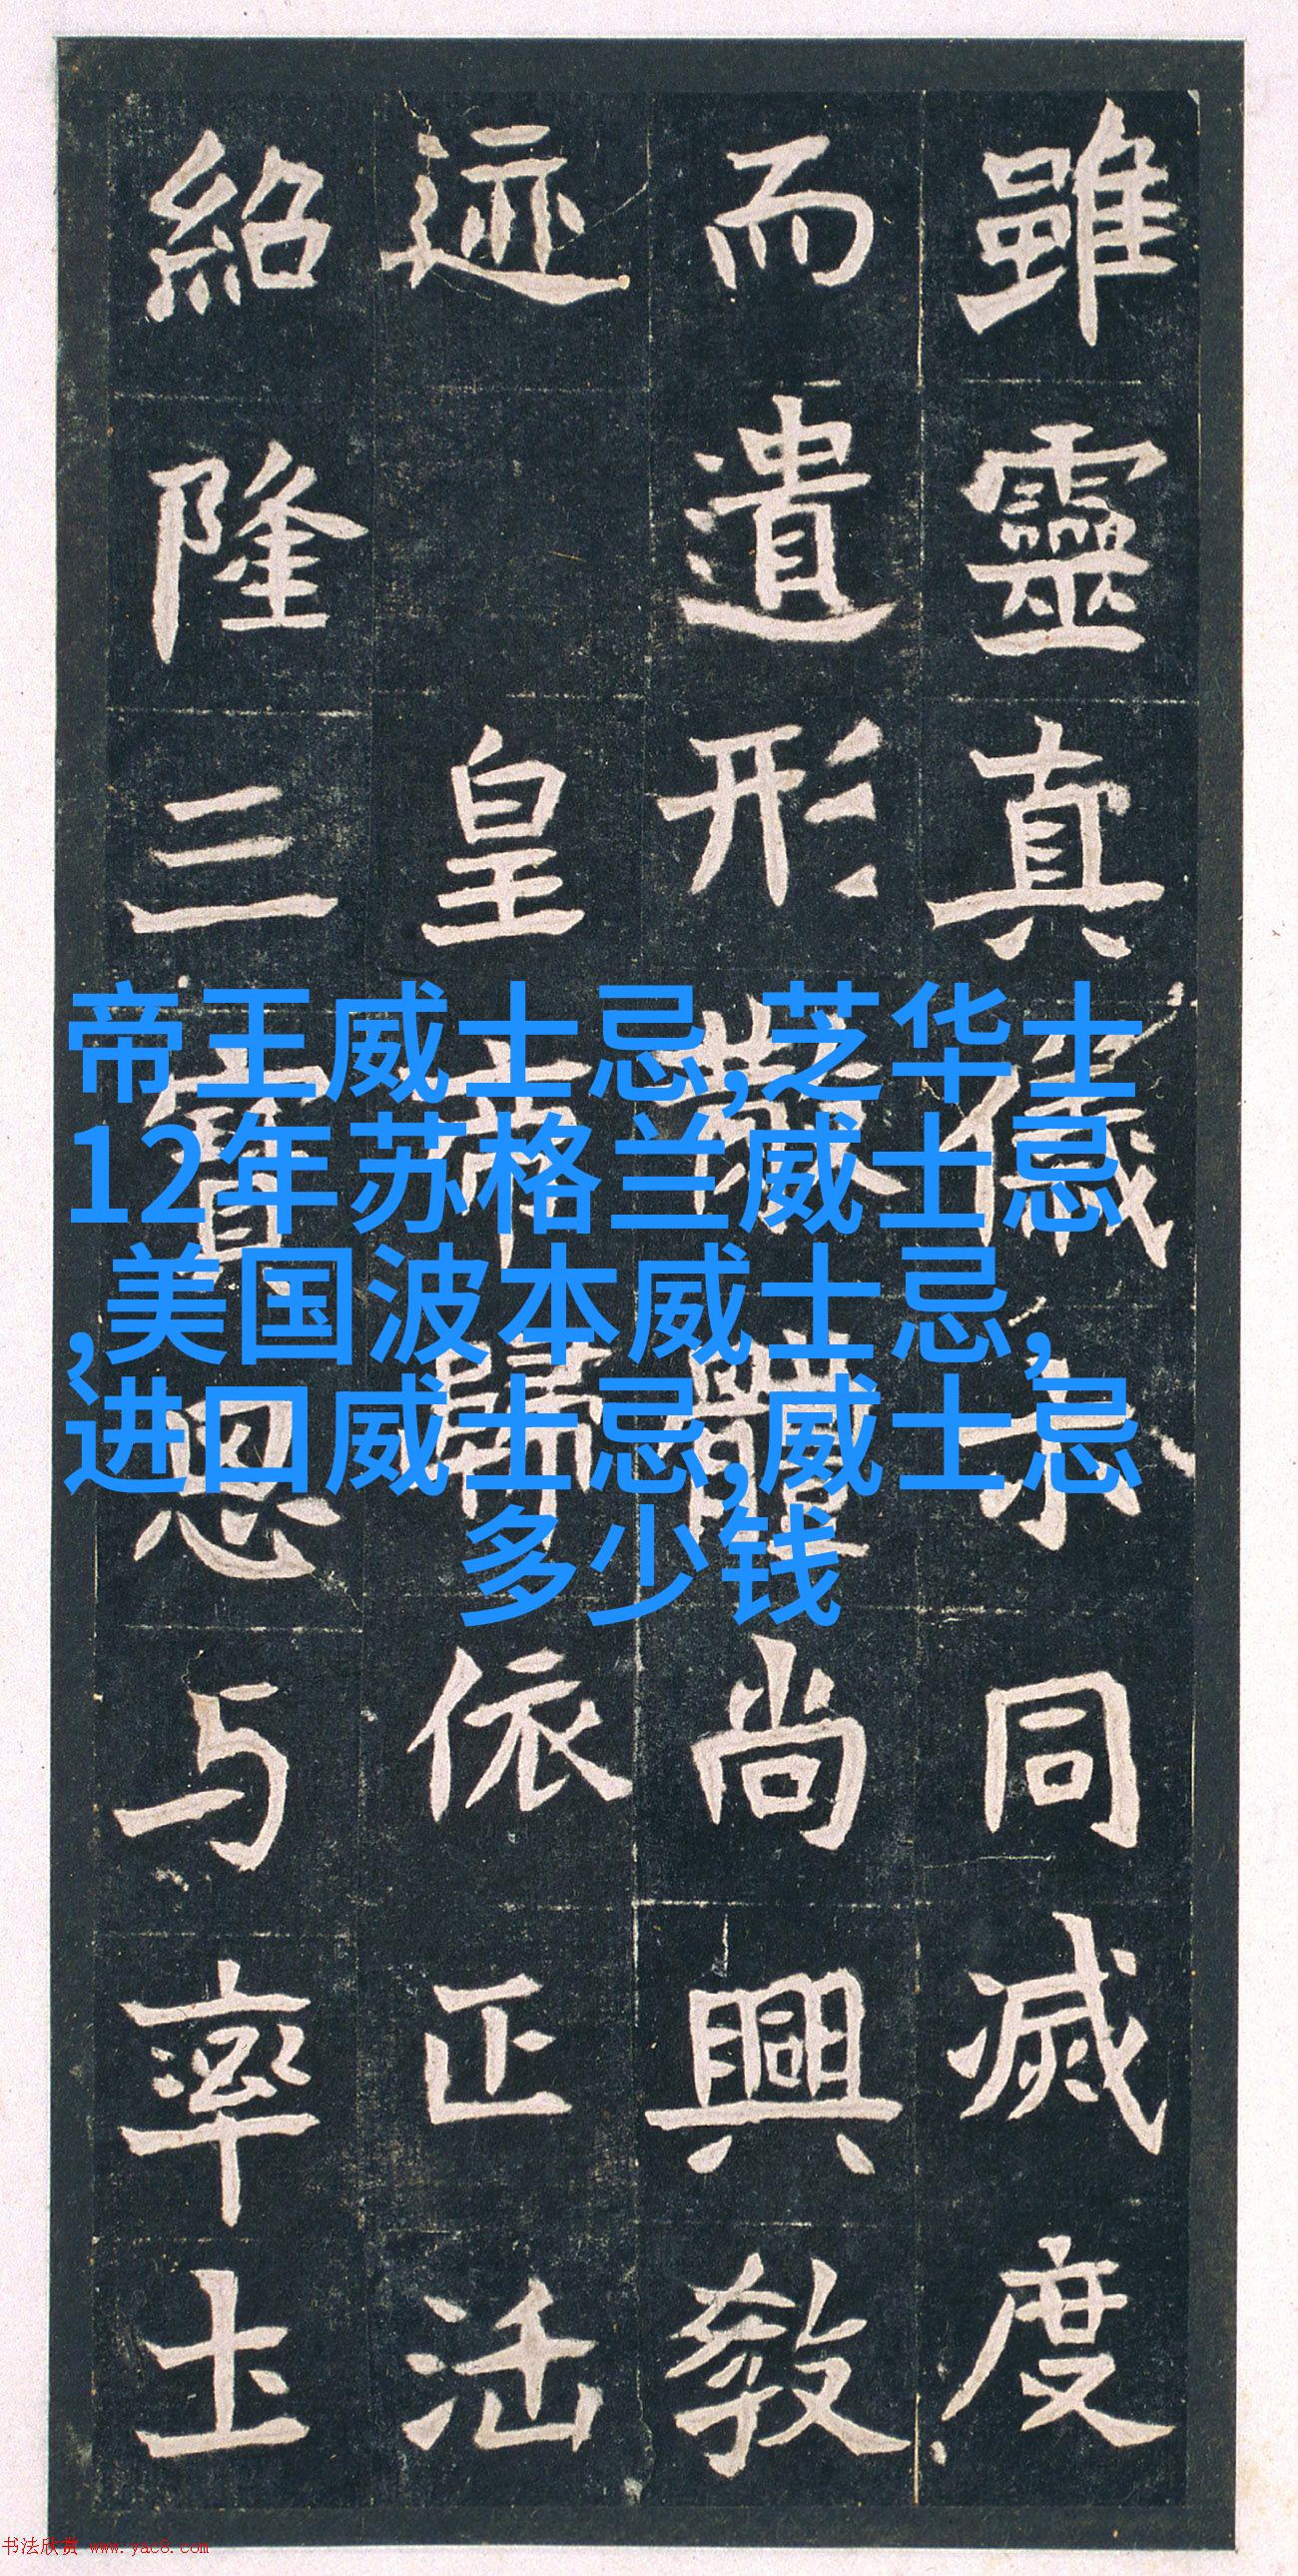 雖靈真儀示同滅度
而遺形散體尚興教
迹 皇帝歸依正法
紹隆三寶恩与率土
帝王威士忌,芝华士
12年苏格兰威士忌
,美国波本威士忌,
进口威士忌,威士忌
多少钱
书法欣赏 www.yac8.com